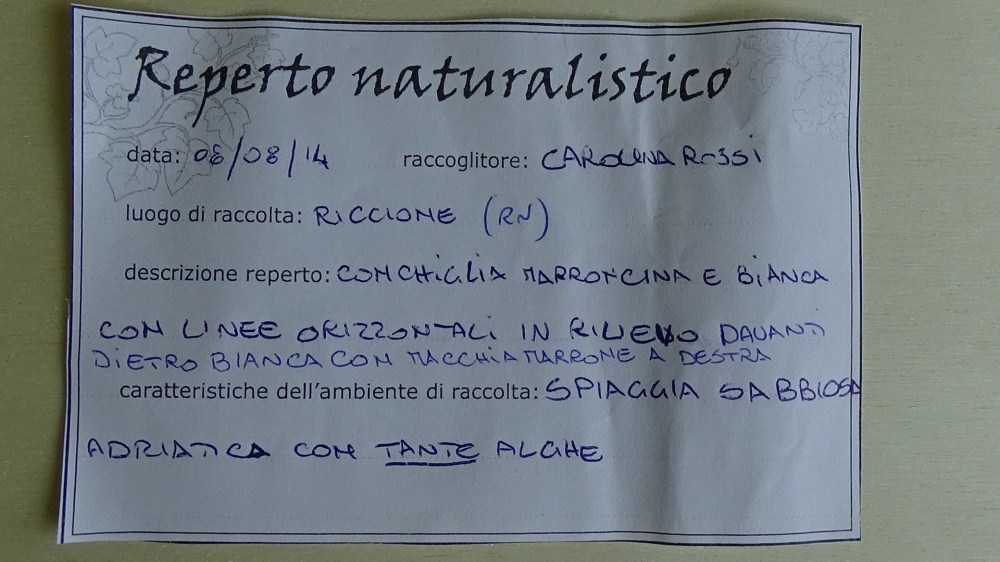 Reperto naturalistico
data: 06/08/14 raccoglitore: CAROLINA ROSSI
luogo di raccolta: RICCIONE (RN)
descrizione reperto: CONCHIGLIA MARRONCINA E BIANCA
CON LINEE ORIZZONTALI IN RILIEVO DAVANTI
DIETRO BIANCA CON MACCHIA MARRONE A DESTRA
caratteristiche dell'ambiente di raccolta: SPIAGGIA SABBIOSA
ADRIATICA CON TANTE ALGHE